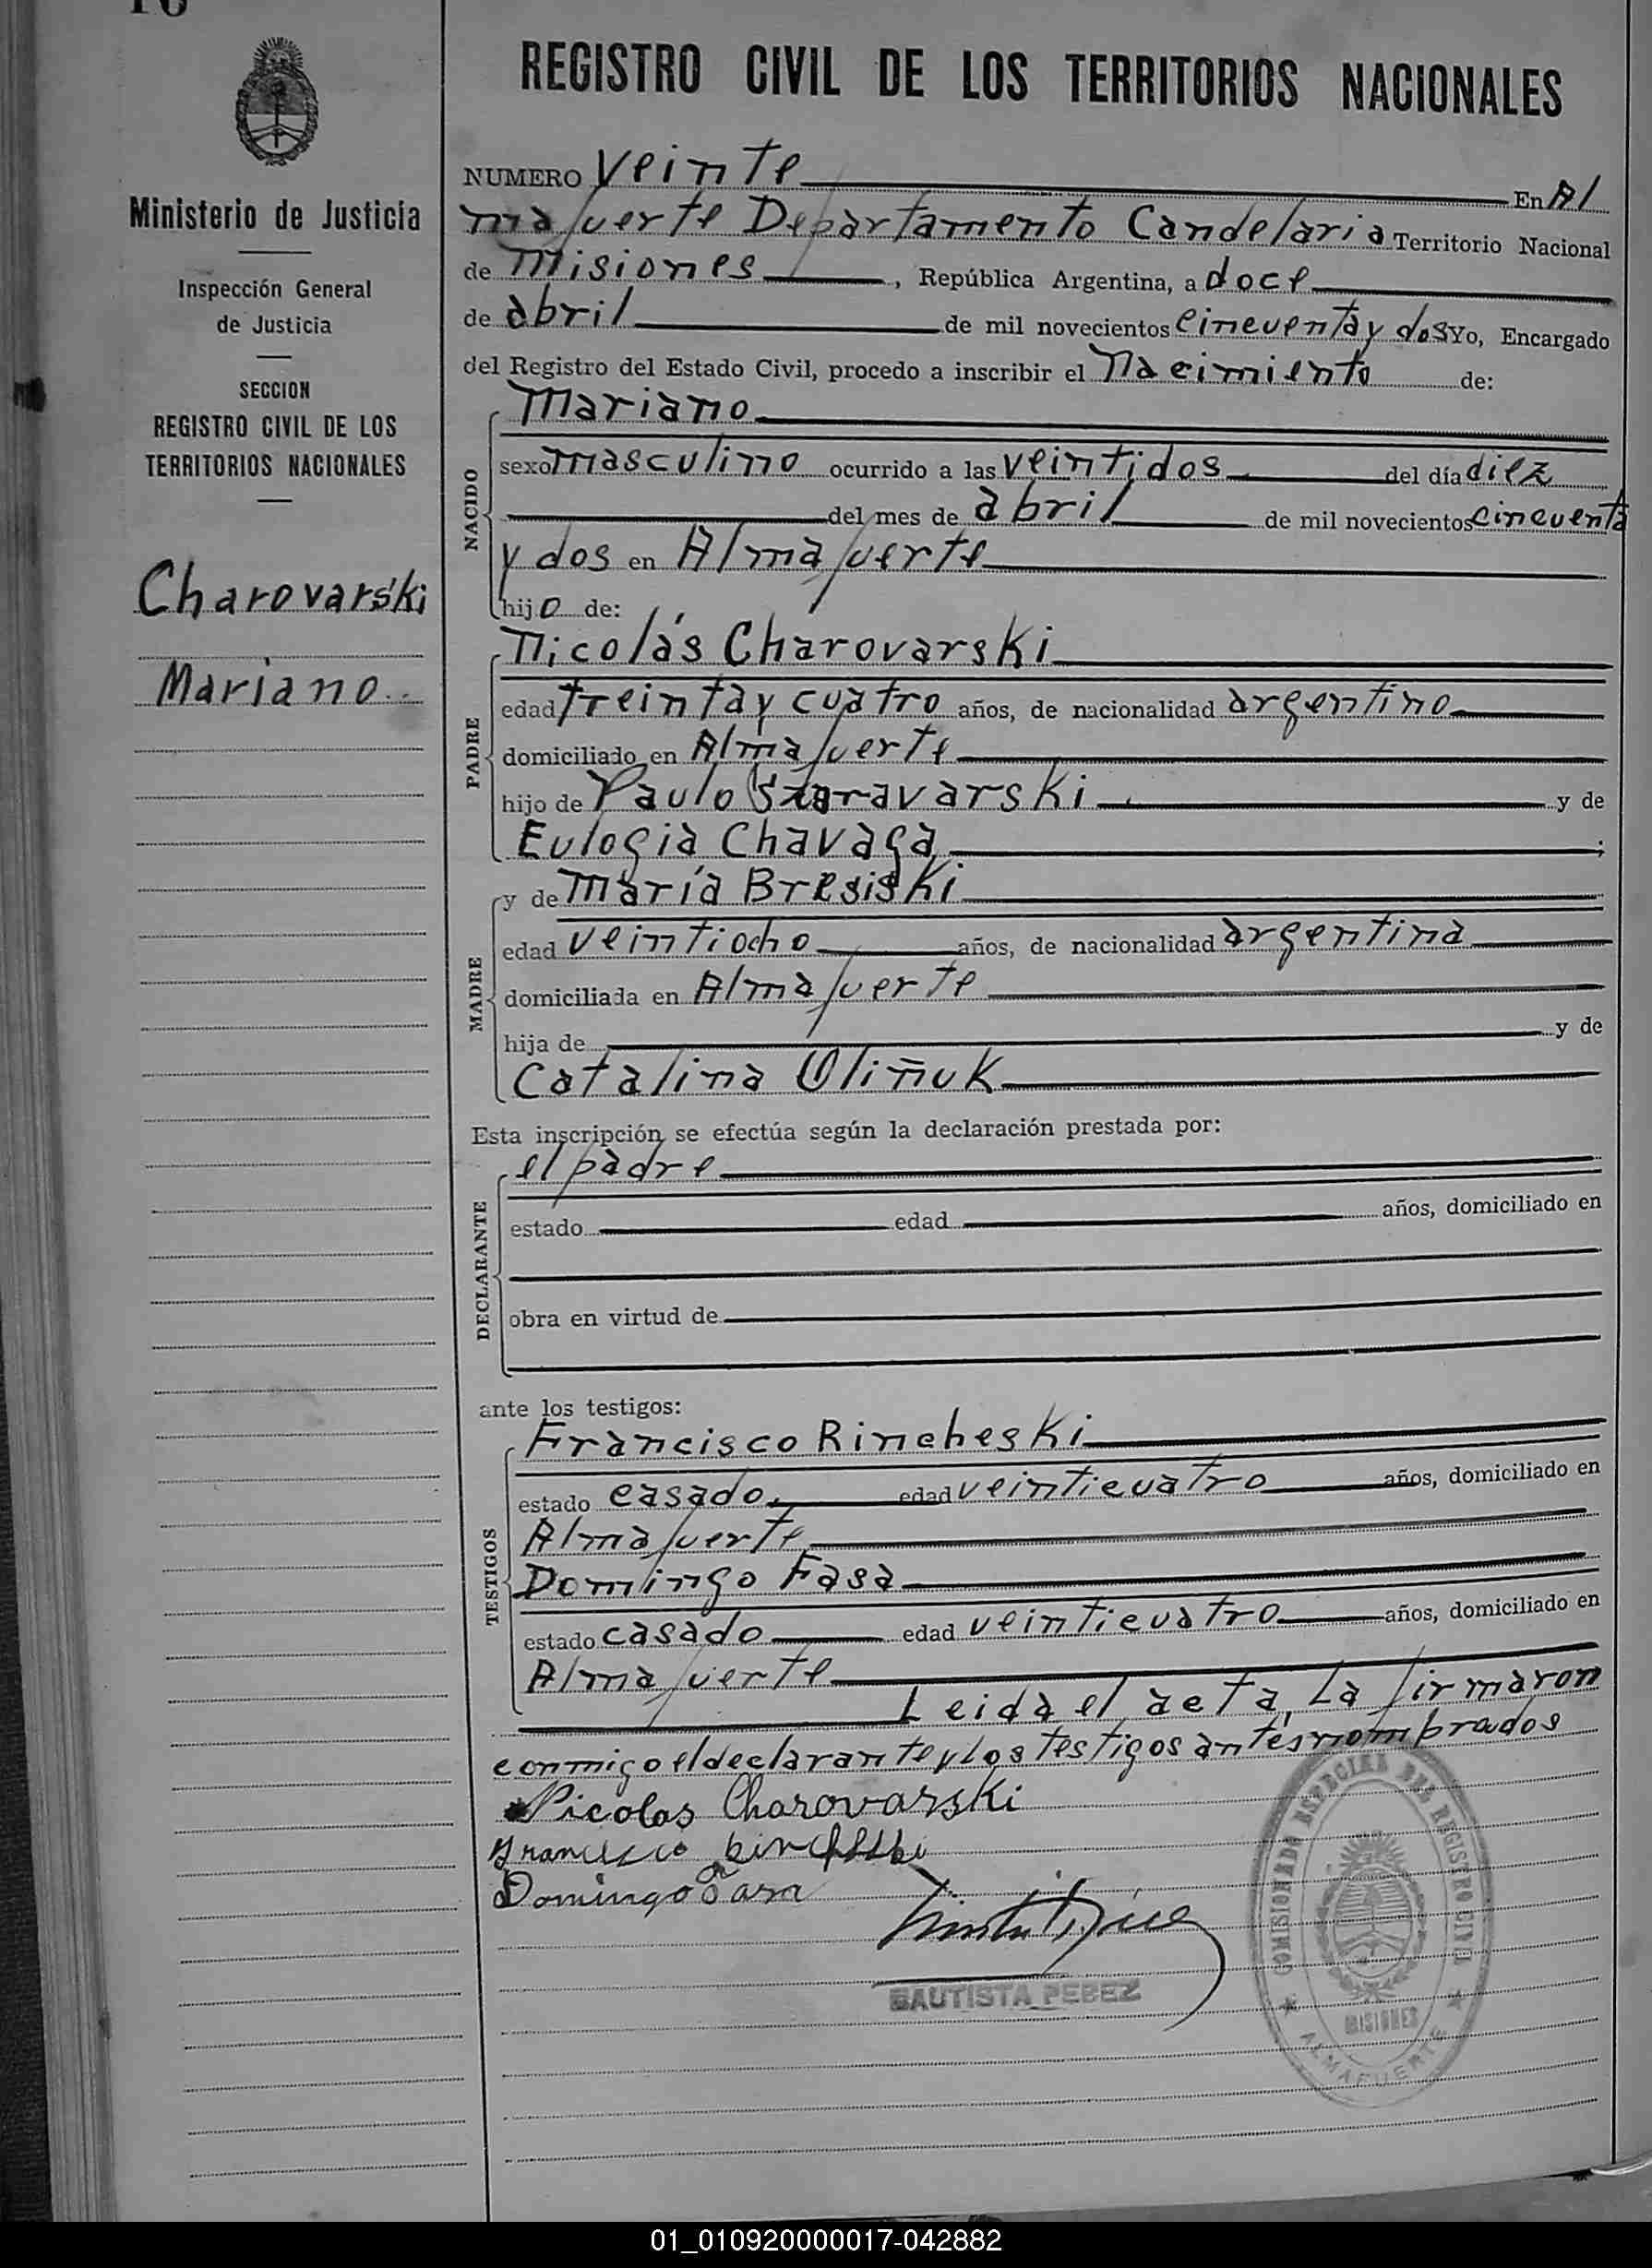 REGISTRO CIVIL DE LOS TERRITORIOS NACIONALES
Ministerio de Justicia
Inspección General
de Justicia
SECCION
REGISTRO CIVIL DE LOS
TERRITORIOS NACIONALES
Charovarski
Mariano
NUMERO veinte En Al
mafuerte Departamento Candelaria Territorio Nacional
de Misiones, República Argentina, a doce
de abril de mil novecientos cincuenta y dos Yo, Encargado
del Registro del Estado Civil, procedo a inscribir el Nacimiento de:
NACIDO
Mariano
sexo masculino ocurrido a las veintidos del día diez
del mes de abril de mil novecientos cincuenta
y dos en Almafuerte
hijo de:
PADRE
Nicolás Charovarski
edad treinta y cuatro años, de nacionalidad argentino
domiciliado en Almafuerte
hijo de Paulo Szaravarski y de
Eulogia Chavaga;
MADRE
y de María Bresiski
edad veintiocho años, de nacionalidad argentina
domiciliada en Almafuerte
hija de y de
Catalina Oliñuk
Esta inscripción se efectúa según la declaración prestada por:
DECLARANTE
el padre
estado edad años, domiciliado en
obra en virtud de
ante los testigos:
TESTIGOS
Francisco Rincheski
estado casado edad veinticuatro años, domiciliado en
Almafuerte
Domingo Fasa
estado casado edad veinticuatro años, domiciliado en
Almafuerte
Leida el acta, La firmaron
conmigo el declarante y Los testigos antes nombrados
Nicolas Charovarski
Francisco
Domingo
BAUTISTA PEREZ
COMISIONADO ESPECIAL DEL REGISTRO CIVIL
MISIONES
ALMAFUERTE
01_010920000017-042882